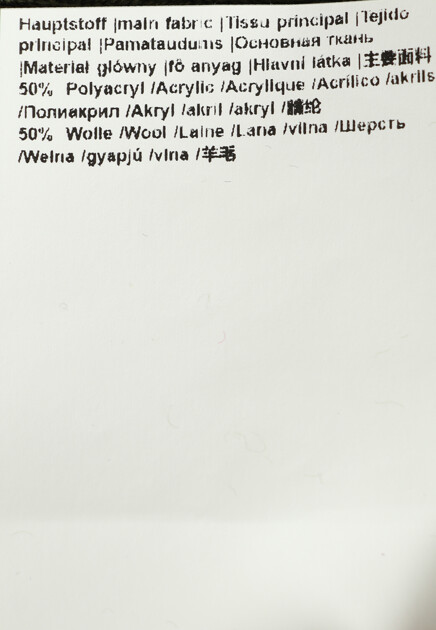 Hauptstoff |main fabric |Tissu principal |Tejido
principal |Pamataudums |Основная ткань
|Materiał główny |fő anyag |Hlavní látka |主要面料
50% Polyacryl /Acrylic /Acrylique /Acrílico /akrils
/Полиакрил /Akryl /akril /akryl /腈纶
50% Wolle /Wool /Laine /Lana /vilna /Шерсть
/Wełna /gyapjú /vlna /羊毛